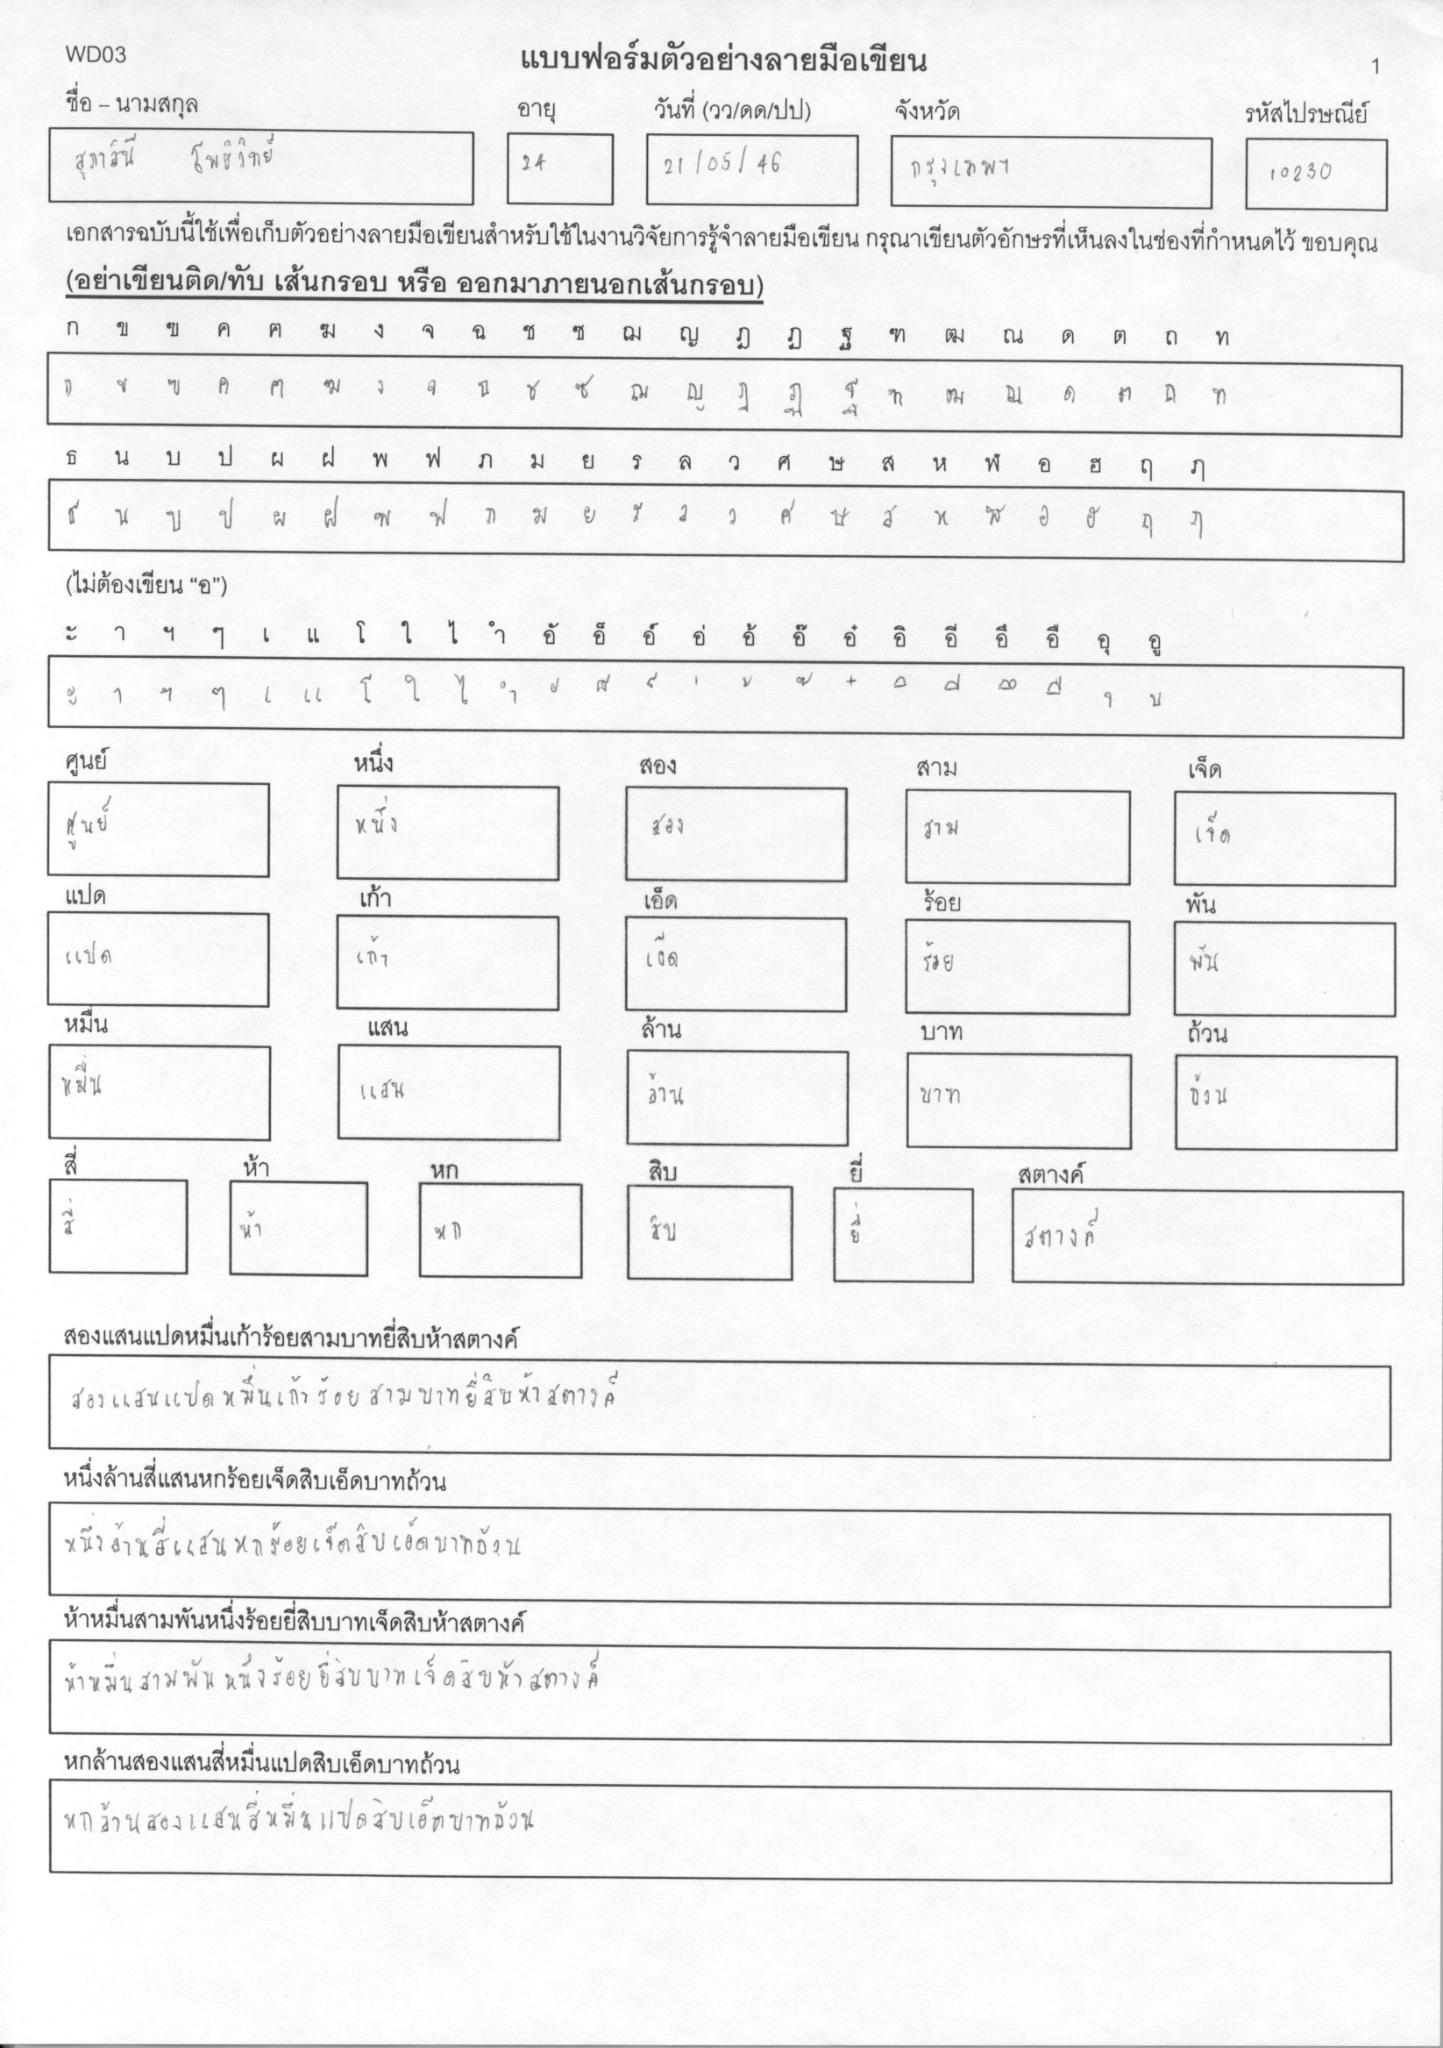 WD03 แบบฟอร์มตัวอย่างลายมือเขียน 1
ชื่อ – นามสกุล อายุ วันที่ (วว/ดด/ปป) จังหวัด รหัสไปรษณีย์
สุภาวินี โพธิวิทย์ 24 21/05/46 กรุงเทพฯ 10230
เอกสารฉบับนี้ใช้เพื่อเก็บตัวอย่างลายมือเขียนสำหรับใช้ในงานวิจัยการรู้จำลายมือเขียน กรุณาเขียนตัวอักษรที่เห็นลงในช่องที่กำหนดไว้ ขอบคุณ
(อย่าเขียนติด/ทับ เส้นกรอบ หรือ ออกมาภายนอกเส้นกรอบ)
ก ข ฃ ค ฅ ฆ ง จ ฉ ช ซ ฌ ญ ฎ ฏ ฐ ฑ ฒ ณ ด ต ถ ท
ก ข ฃ ค ฅ ฆ ง จ ฉ ช ซ ฌ ญ ฎ ฏ ฐ ฑ ฒ ณ ด ต ถ ท
ธ น บ ป ผ ฝ พ ฟ ภ ม ย ร ล ว ศ ษ ส ห ฬ อ ฮ ฤ ฦ
ธ น บ ป ผ ฝ พ ฟ ภ ม ย ร ล ว ศ ษ ส ห ฬ อ ฮ ฤ ฦ
(ไม่ต้องเขียน “อ”)
ะ า ฯ ๆ เ แ โ ใ ไ ำ อั อ็ อ์ อ่ อ้ อ๊ อ๋ อิ อี อึ อื อุ อู
ะ า ฯ ๆ เ แ โ ใ ไ ำ ั ็ ์ ่ ้ ๊ ๋ ิ ี ึ ื ุ ู
ศูนย์ หนึ่ง สอง สาม เจ็ด
ศูนย์ หนึ่ง สอง สาม เจ็ด
แปด เก้า เอ็ด ร้อย พัน
แปด เก้า เอ็ด ร้อย พัน
หมื่น แสน ล้าน บาท ถ้วน
หมื่น แสน ล้าน บาท ถ้วน
สี่ ห้า หก สิบ ยี่ สตางค์
สี่ ห้า หก สิบ ยี่ สตางค์
สองแสนแปดหมื่นเก้าร้อยสามบาทยี่สิบห้าสตางค์
สองแสนแปดหมื่นเก้าร้อยสามบาทยี่สิบห้าสตางค์
หนึ่งล้านสี่แสนหกร้อยเจ็ดสิบเอ็ดบาทถ้วน
หนึ่งล้านสี่แสนหกร้อยเจ็ดสิบเอ็ดบาทถ้วน
ห้าหมื่นสามพันหนึ่งร้อยยี่สิบบาทเจ็ดสิบห้าสตางค์
ห้าหมื่นสามพันหนึ่งร้อยยี่สิบบาทเจ็ดสิบห้าสตางค์
หกล้านสองแสนสี่หมื่นแปดสิบเอ็ดบาทถ้วน
หกล้านสองแสนสี่หมื่นแปดสิบเอ็ดบาทถ้วน